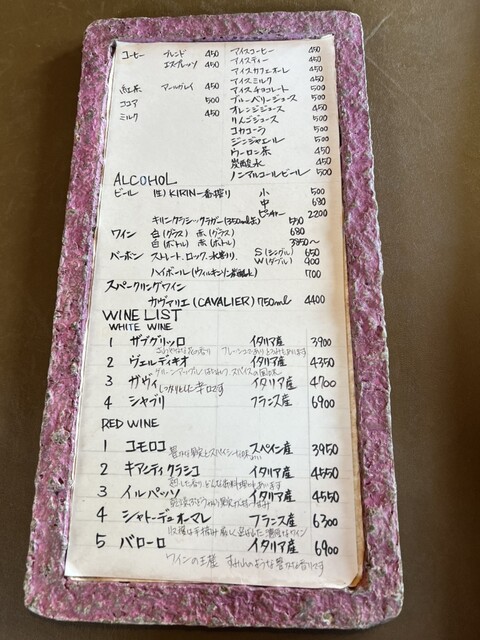 コーヒー ブレンド 450
エスプレッソ 450
紅茶 アールグレイ 450
ココア 500
ミルク 450
アイスコーヒー 450
アイスティー 450
アイスカフェオーレ 450
アイスミルク 450
アイスチョコレート 500
ブルーベリージュース 500
オレンジジュース 450
りんごジュース 500
コカコーラ 500
ジンジャエール 500
ウーロン茶 450
炭酸水 450
ノンアルコールビール 500
ALCOHOL
ビール (生) KIRIN 一番搾り 小 500
中 680
ピッチャー 2200
キリンクラシックラガー(350ml缶) 550
ワイン 白(グラス) 赤(グラス) 680
白(ボトル) 赤(ボトル) 3850〜
バーボン ストレート、ロック、水割り、 S(シングル) 650
W(ダブル) 900
ハイボール(ウィルキンソン炭酸水) 700
スパークリングワイン
カヴァリエ(CAVALIER) 750ml 4400
WINE LIST
WHITE WINE
1 ザブグリッロ イタリア産 3900
2 ヴェルディキオ イタリア産 4350
グリーンアップル
3 ガヴィ イタリア産 4700
しっかりとした辛口です
4 シャブリ フランス産 6900
RED WINE
1 コモロコ スペイン産 3950
2 キアンティクラシコ イタリア産 4550
3 イルパッソ イタリア産 4550
4 シャトーデュオーマレ フランス産 6300
5 バローロ イタリア産 6900
ワインの王様 すみれのような豊かな香りです